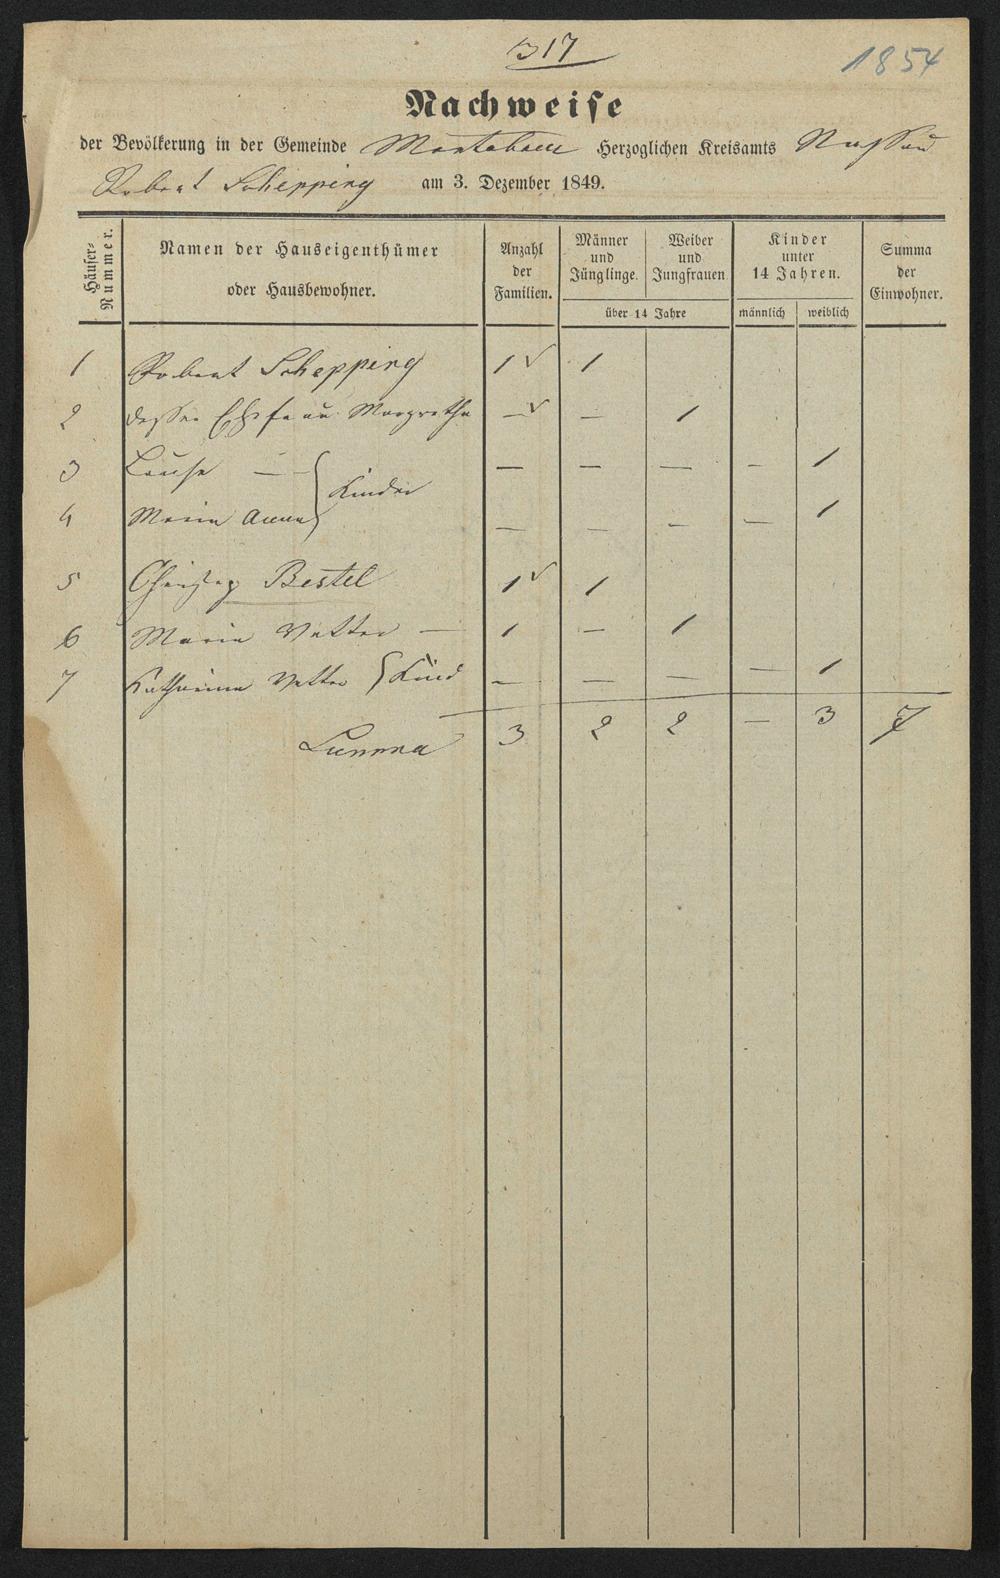 317
1854
Nachweise
der Bevölkerung in der Gemeinde Montabaur Herzoglichen Kreisamts Nassau
Robert Schepping am 3. Dezember 1849.
Häuser-Nummer.
Namen der Hauseigenthümer
oder Hausbewohner.
Anzahl
der
Familien.
Männer
und
Jünglinge.
Weiber
und
Jungfrauen
über 14 Jahre
Kinder
unter
14 Jahren.
männlich
weiblich
Summa
der
Einwohner.
1 Robert Schepping 1 ✓ 1
2 dessen Ehefrau Margretha — ✓ — 1
3 Louise — — — — — 1
Kinder
4 Maria Anna — — — — 1
5 Bestel 1 ✓ 1
6 Maria Vetter — 1 — 1
7 Katharina Vetter Kind — — — — 1
Summa 3 2 2 — 3 7